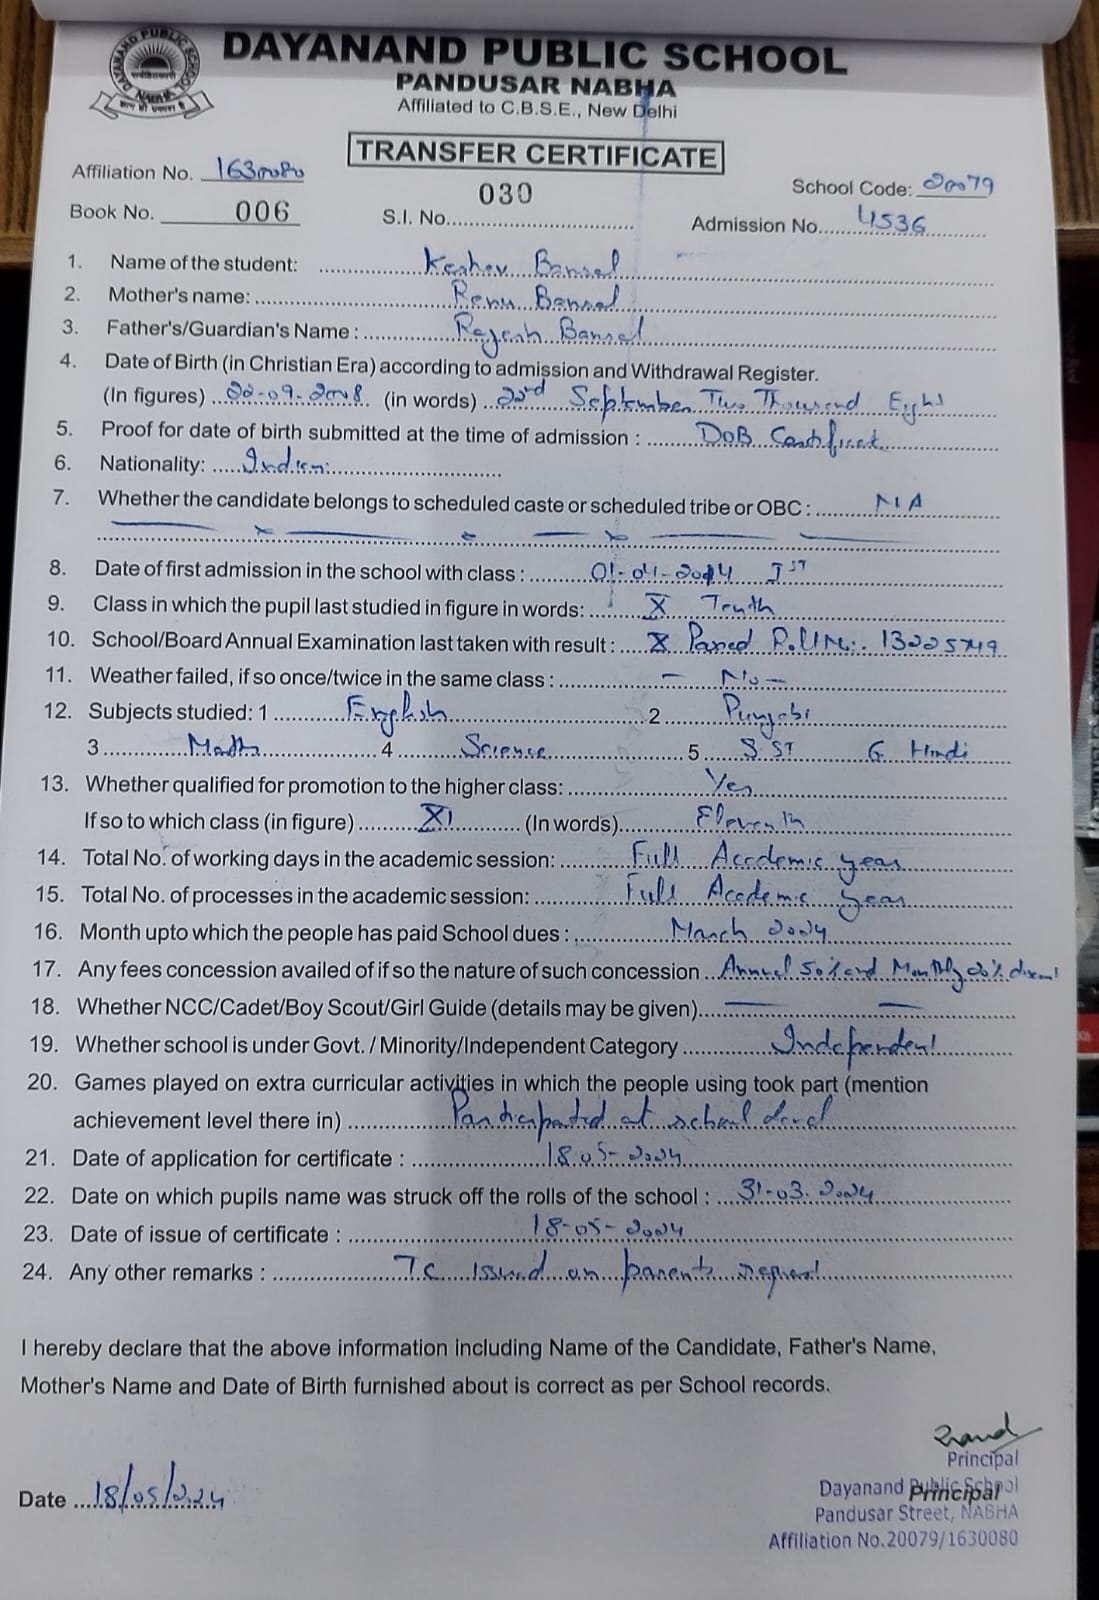 DAYANAND PUBLIC SCHOOL
PANDUSAR NABHA
Affiliated to C.B.S.E., New Delhi
DAYANAND PUBLIC SCHOOL
NABHA
TRANSFER CERTIFICATE
Affiliation No. 1630080
School Code: 20079
Book No. 006
S.I. No. 030
Admission No. 4536
1. Name of the student: Keshav Bansal
2. Mother's name: Renu Bansal
3. Father's/Guardian's Name : Rajesh Bansal
4. Date of Birth (in Christian Era) according to admission and Withdrawal Register.
(In figures) 22-09-2008 (in words) 22rd September Two Thousand Eight
5. Proof for date of birth submitted at the time of admission : DoB Certificate
6. Nationality: Indian
7. Whether the candidate belongs to scheduled caste or scheduled tribe or OBC : NA
8. Date of first admission in the school with class : 01-04-2014 Ist
9. Class in which the pupil last studied in figure in words: X Tenth
10. School/Board Annual Examination last taken with result : X Passed
11. Weather failed, if so once/twice in the same class : - No -
12. Subjects studied: 1 English 2 Punjabi
3 Maths 4 Science 5 S.ST 6. Hindi
13. Whether qualified for promotion to the higher class: Yes
If so to which class (in figure) XI (In words) Eleventh
14. Total No. of working days in the academic session: Full Academic year
15. Total No. of processes in the academic session: Full Academic year
16. Month upto which the people has paid School dues : March 2024
17. Any fees concession availed of if so the nature of such concession Annual 50% and Monthly 20%
18. Whether NCC/Cadet/Boy Scout/Girl Guide (details may be given)
19. Whether school is under Govt. / Minority/Independent Category Independent
20. Games played on extra curricular activities in which the people using took part (mention
achievement level there in) Participated at school level
21. Date of application for certificate : 18-05-2024
22. Date on which pupils name was struck off the rolls of the school : 31-03-2024
23. Date of issue of certificate : 18-05-2024
24. Any other remarks : TC Issued on parents request
I hereby declare that the above information including Name of the Candidate, Father's Name,
Mother's Name and Date of Birth furnished about is correct as per School records.
Date 18/05/2024
Principal
Dayanand Public School
Principal
Pandusar Street, NABHA
Affiliation No.20079/1630080